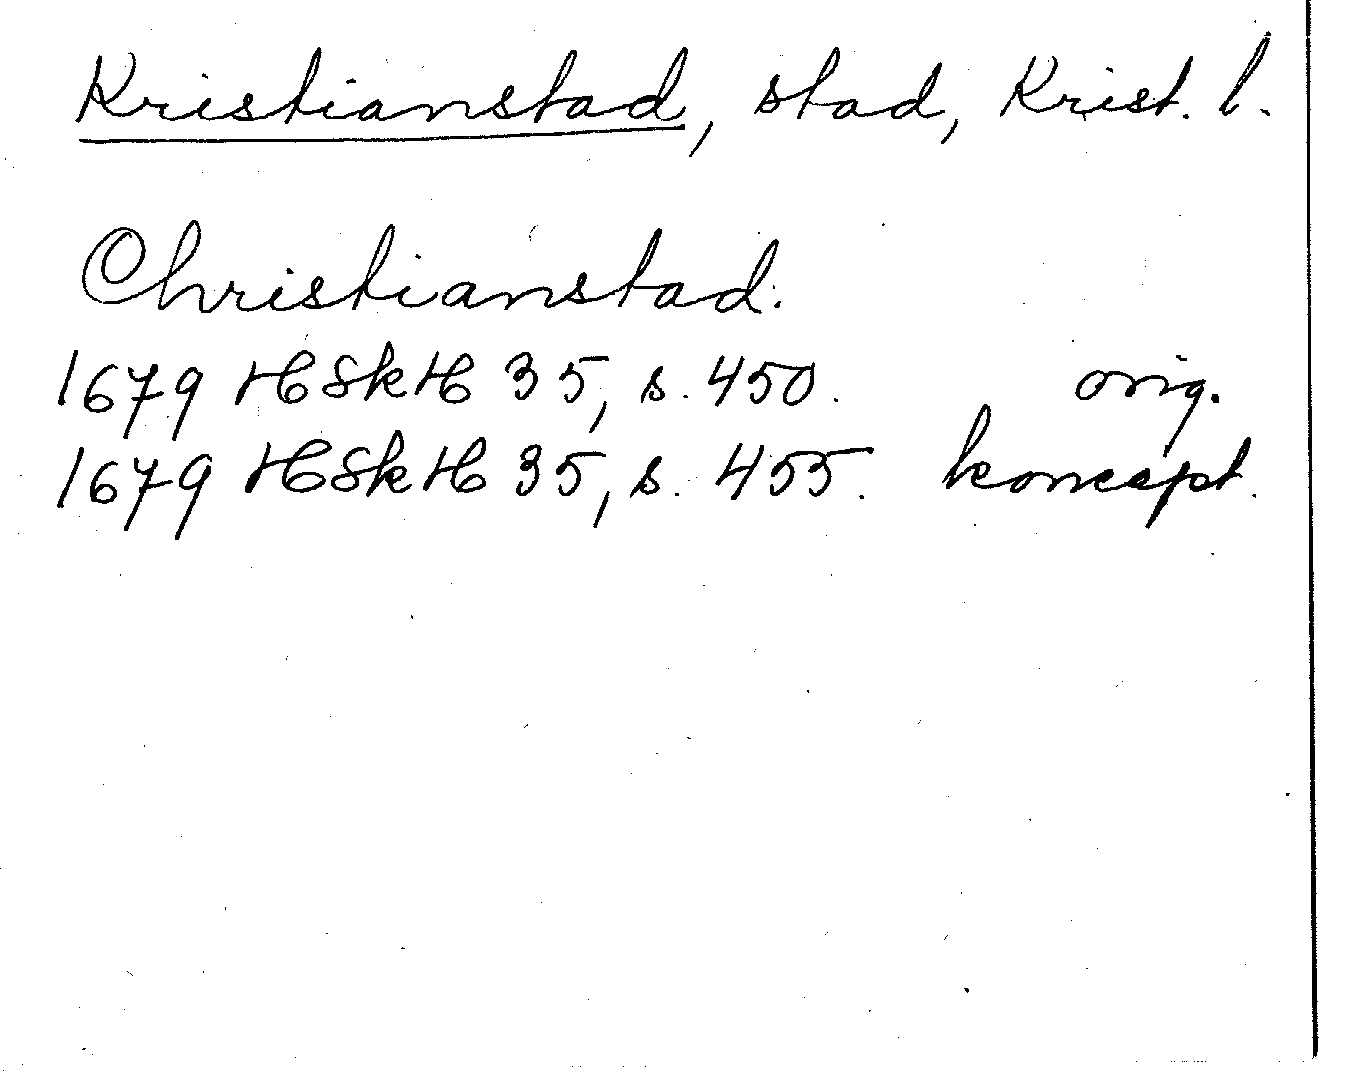 Kristianstad, stad, Krist. l.
Christianstad.
1679 HSkH 35, s. 450. orig.
1679 HSkH 35, s. 455. koncept.